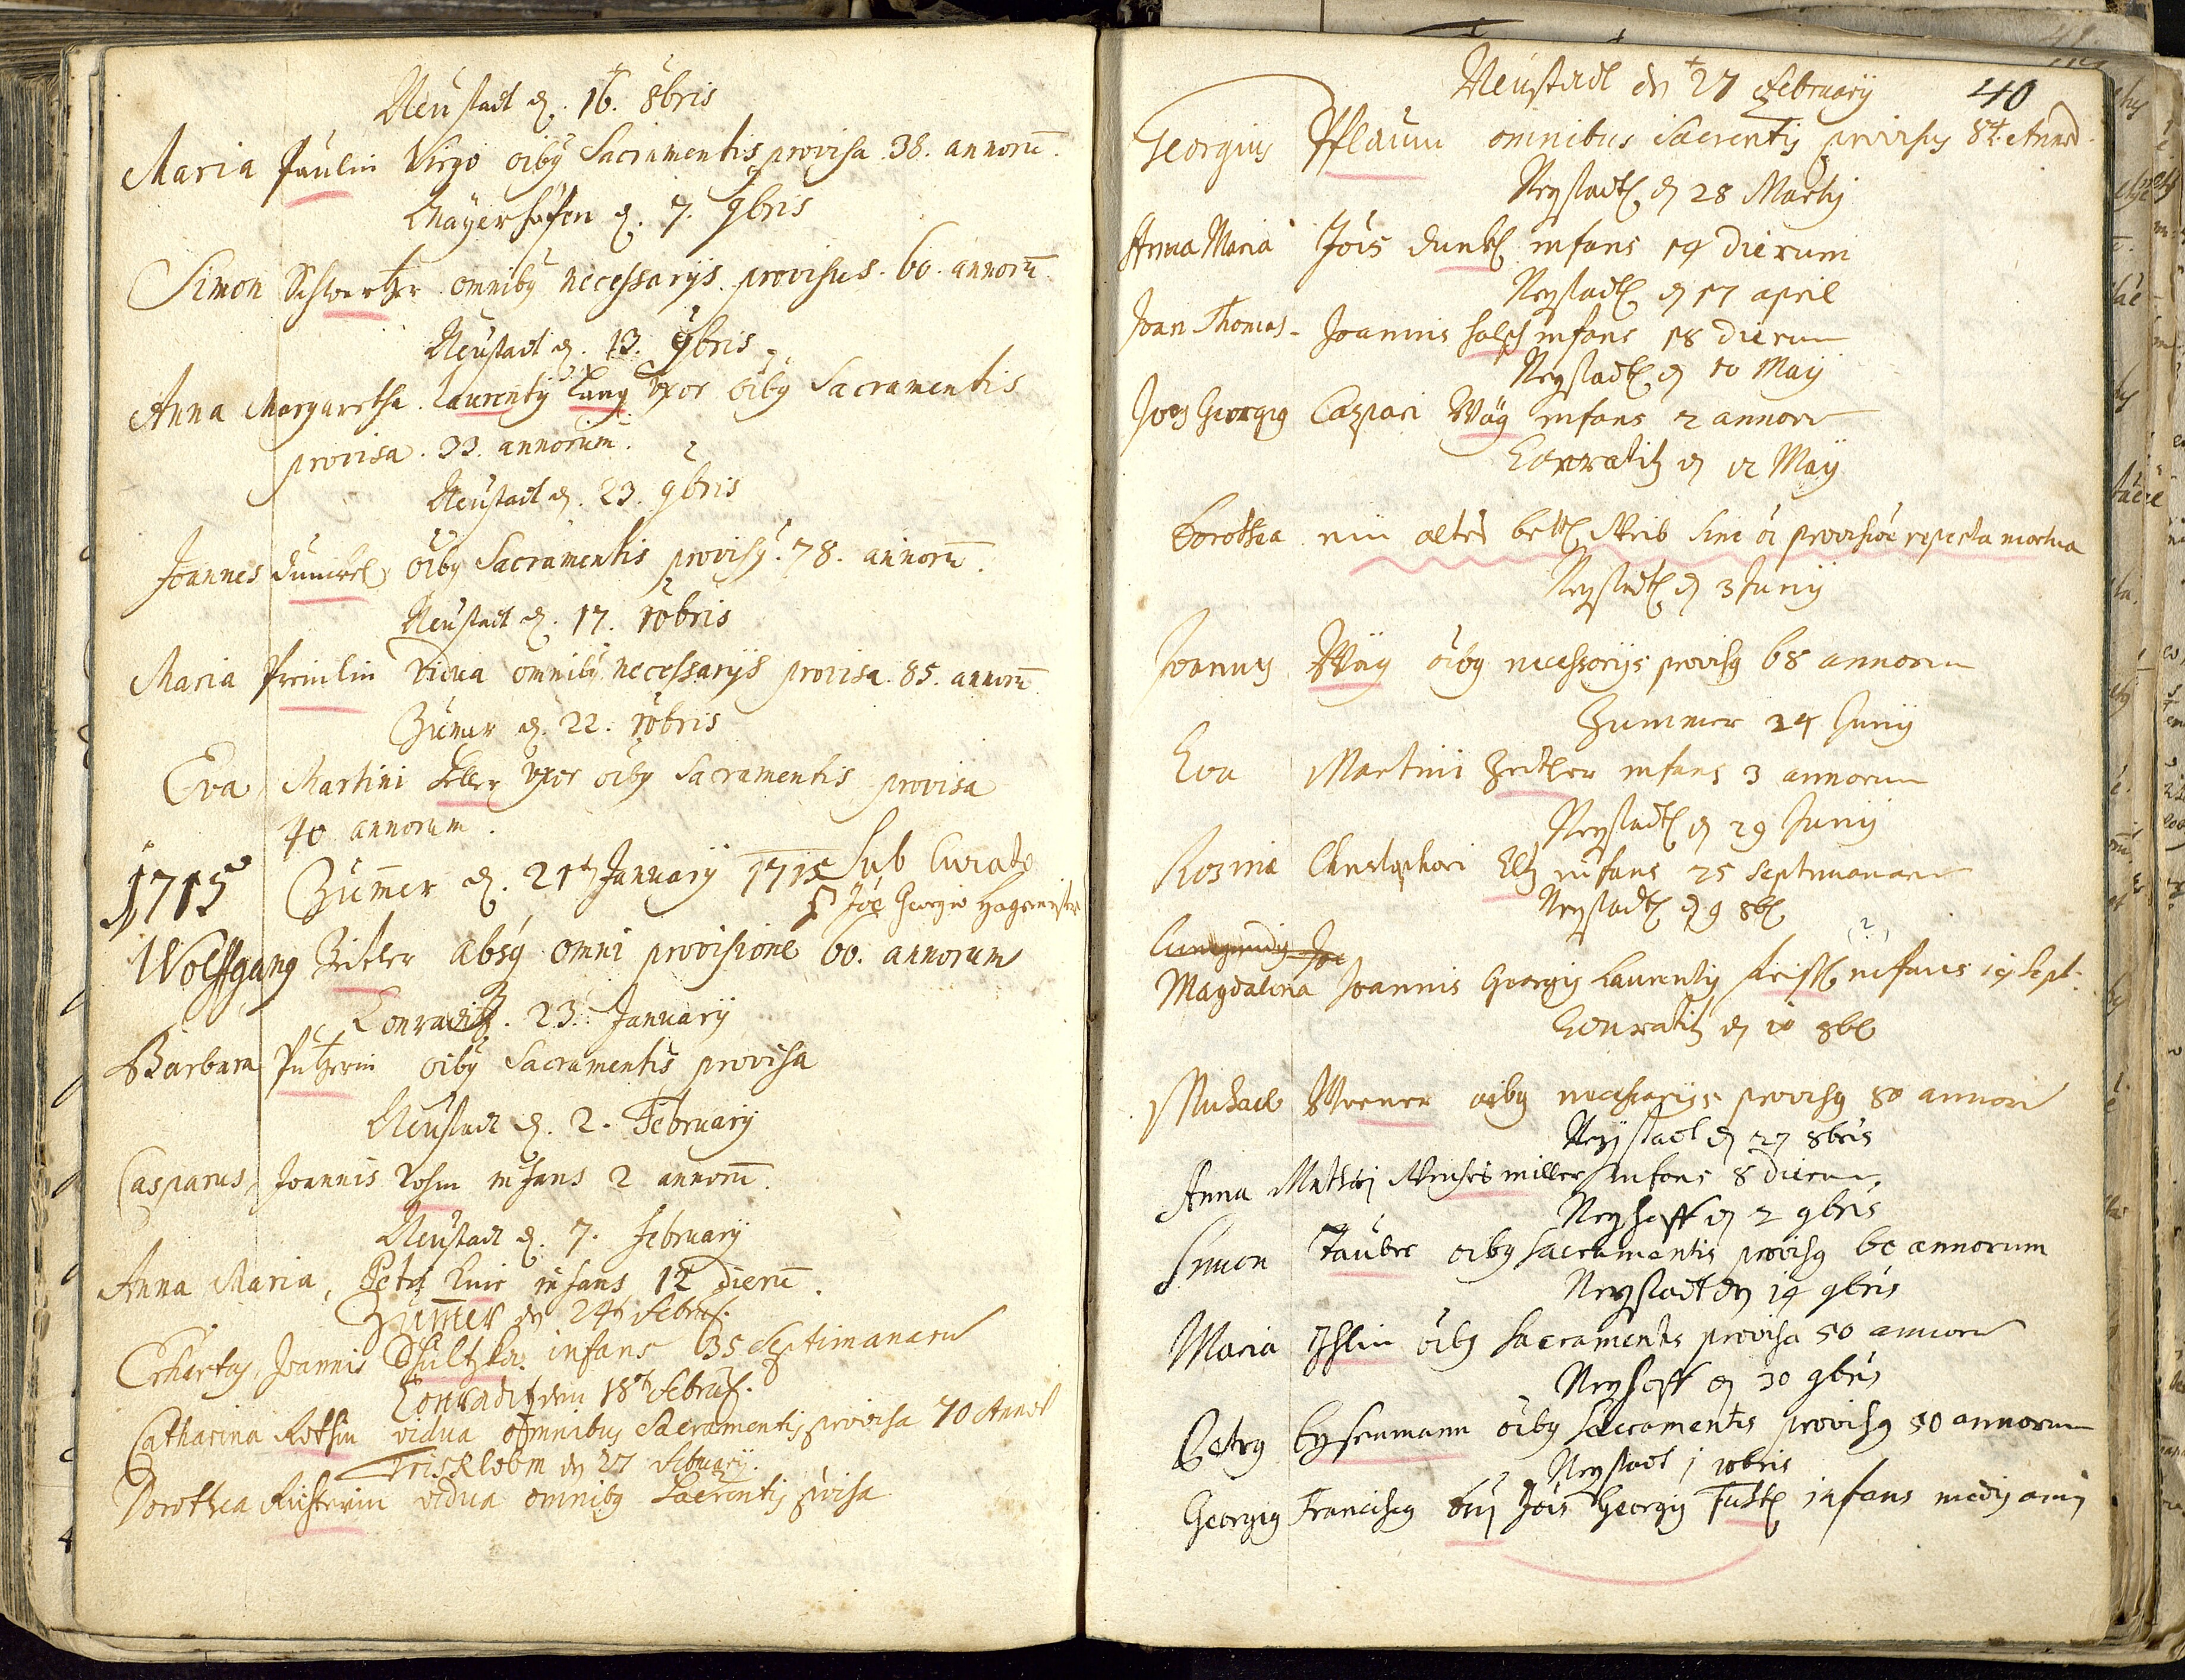 Neustadt d. 16. 8bris
Maria Paulin Virgo oibg Sacramentis provisa 38. annorū.
Mayerhofen d. 7. 9bris
Simon Schwertzer omnibg necessarijs provisus. 60. annorū.
Neustadt d. 13. 9bris
Anna Margaretha Laurentij Lang Vxor oibg Sacramentis
provisa. 33. annorum.
Neustadt d. 23. 9bris
Joannes oibg Sacramentis provisg. 78. annorū.
Neustadt d. 17. 10bris
Maria Preinlin Vidua omnibg necessarijs provisa. 85. annorū.
Zumer d. 22. 10bris
Eva Martini Vxor oibg Sacramentis provisa
40 annorum.
1715 Zum̄er d. 21t January 1715 Sub Curato
Joe Georgio Hagenrister
Wolffgang Zeitler absg omni provisione 60. annorum
Konraditz. 23. January
Barbara Putzerin oibg Sacramentis provisa
Neustadt d. 2. February
Casparus, Joannis Rohm infans 2 annorū.
Neustadt d. 7. February
Anna Maria, Petri infans 12 dierū.
Zum̄er den 24t Februa.
Erhartg, Joannis Schultz infans 35 Septimanaru
Konraditz den 18t Februa.
Catharina Rothin vidua omnibus Sacramentis provisa 70 Annor
den 27 February.
Dorothea Richterin vidua omnibg Sacrentis pvisa
40
Neustadt dn 27 February
Georgius Pflaum omnibus Sacrentis provisus 84 Annor.
Neystadt d 28 Martij
Anna Maria Jois dunkl infans 14 dierum
Neystadt d 17 april
Joan Thomas Joannis infans 18 dierum
Neystadt d 10 Maij
Joes Georgig Caspari Wäg infans 2 annoru
Conratitz d 12 Maij
Dorothea ein altes bettl Weib sine oi provisioe reperta mortua
Neystadt d 3 Junij
Joannes Wäg oibg necessarijs provisg 68 annorum
Zummer 24 Junij
Eva Martini Zeitler infans 3 annorum
Neystadt d 29 Junij
Rosina Christophori infans 25 Septimanaru
Neystadt d 9 8b
(?)
Magdalena Joannis Georgij Laurentij infans 14 Sept.
Conratitz d 10 8b
Michael Werner oibg necessarijs provisg 80 annoru
Neystadt d 27 8bris
Anna Mathej miller infans 8 dierum
Neyhoff d 2 9bris
Simon Tauber oibg Sacramentis provisg 60 annorum
Neystadt den 14 9bris
Maria oibg Sacramentis provisa 50 annoru
Neyhoff d 30 9bris
Petrg Eysenmann oibg Sacramentis provisg 50 annorum
Neystadt 1 10bris
Georgig Franciscg Jois Georgij infans medij anij